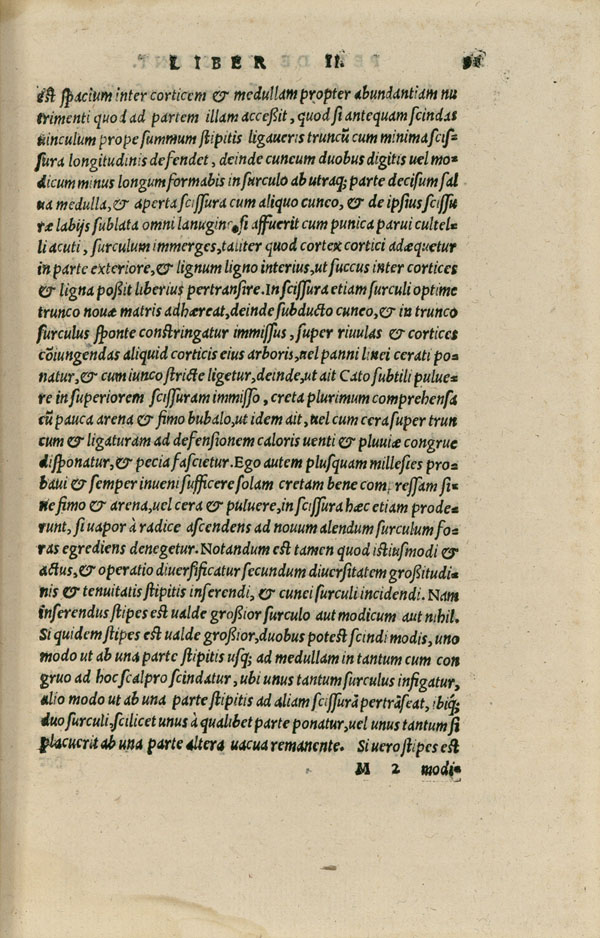 LIBER II.
est spacium inter corticem & medullam propter abundantiam nu
trimenti quod ad partem illam acceßit, quod si antequam scindas
uinculum prope summum stipitis ligaueris truncũ cum minima scis-
sura longitudinis defendet, deinde cuneum duobus digitis uel mo-
dicum minus longum formabis in surculo ab utraq; parte decisum sal
ua medulla, & aperta scissura cum aliquo cuneo, & de ipsius scissu
ræ labijs sublata omni lanugine si affuerit cum punica parui cultel-
li acuti, surculum immerges, taliter quod cortex cortici adæquetur
in parte exteriore, & lignum ligno interius, ut succus inter cortices
& ligna poßit liberius pertransire. In scissura etiam surculi optime
trunco nouæ matris adhæreat, deinde subducto cuneo, & in trunco
surculus sponte constringatur immissus, super riuulas & cortices
cõiungendas aliquid corticis eius arboris, uel panni linei cerati po-
natur, & cum iunco stricte ligetur, deinde, ut ait Cato subtili pulue-
re in superiorem scissuram immisso, creta plurimum comprehensa
cũ pauca arena & fimo bubalo, ut idem ait, uel cum cera super trun
cum & ligaturam ad defensionem caloris uenti & pluuiæ congrue
disponatur, & pecia fascietur. Ego autem plusquam millesies pro-
baui & semper inueni sufficere solam cretam bene compressam si-
ne fimo & arena, uel cera & puluere, in scissura hæc etiam prode-
runt, si uapor à radice ascendens ad nouum alendum surculum fo-
ras egrediens denegetur. Notandum est tamen quod istiusmodi &
actus, & operatio diuersificatur secundum diuersitatem großitudi-
nis & tenuitatis stipitis inserendi, & cunei surculi incidendi. Nam
inserendus stipes est ualde großior surculo aut modicum aut nihil.
Si quidem stipes est ualde großior, duobus potest scindi modis, uno
modo ut ab una parte stipitis usq; ad medullam in tantum cum con
gruo ad hoc scalpro scindatur, ubi unus tantum surculus infigatur,
alio modo ut ab una parte stipitis ad aliam scissurã pertrãseat, ibiq́;
duo surculi, scilicet unus à qualibet parte ponatur, uel unus tantum si
placuerit ab una parte altera uacua remanente. Si uero stipes est
M 2 modi-